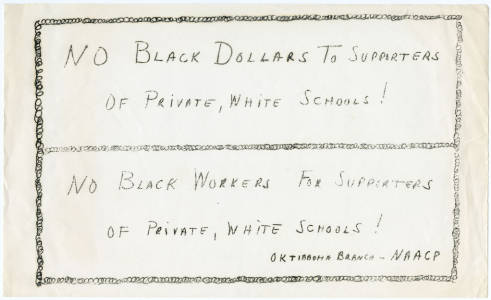 NO BLACK DOLLARS TO SUPPORTERS
OF PRIVATE, WHITE SCHOOLS!
NO BLACK WORKERS FOR SUPPORTERS
OF PRIVATE, WHITE SCHOOLS!
OKTIBBOHA BRANCH - NAACP